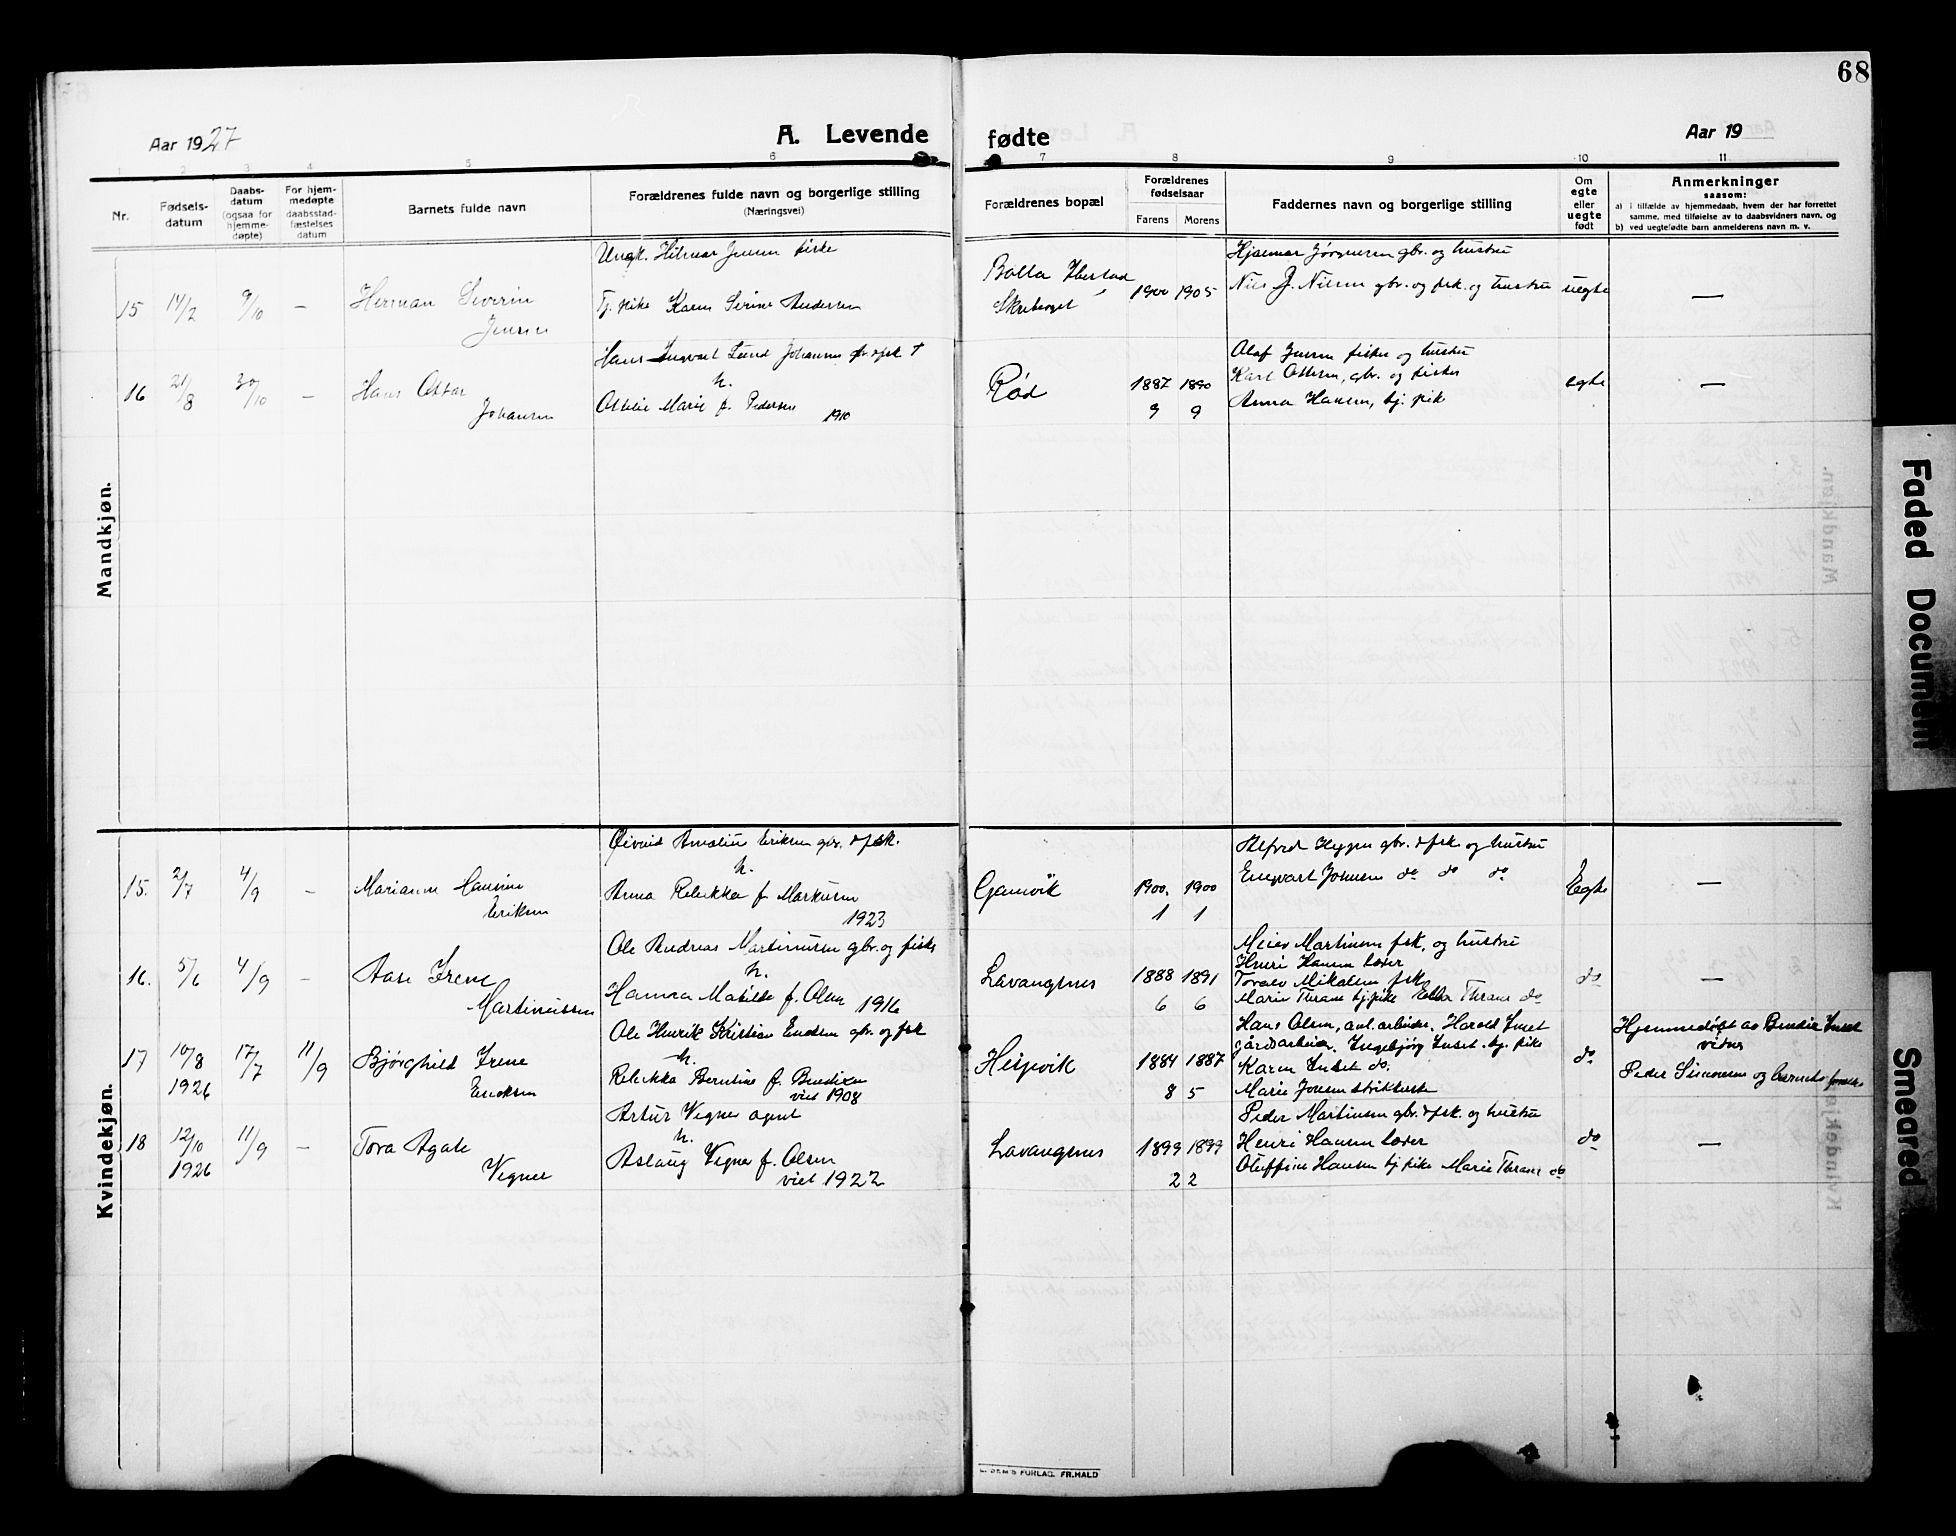 68
Aar 1927
A. Levende
fødte
Aar 19
1 2 3 4 5 6 7 8 9 10 11
Nr.
Fødselsdatum
Daabsdatum (ogsaa for hjemmedøpte)
For hjemmedøpte daabsstadfæstelses datum
Barnets fulde navn
Forældrenes fulde navn og borgerlige stilling
(Næringsvei)
Forældrenes bopæl
Forældrenes fødselsaar
Farens Morens
Faddernes navn og borgerlige stilling
Om egte eller uegte født
Anmerkninger
saasom:
a) i tilfælde av hjemmedaab, hvem der har forrettet samme, med tilføielse av to daabsvidners navn, og
b) ved uegtefødte barn anmelderens navn m. v.
Mandkjøn.
15 14/2 9/10 —
Herman Severin
Jensen
Ungk. Hilmar Jensen fiske
Tj. pike Karen Serine Andersen
Bolla Ibestad
Skrubogel
1900 1905
Hjalmar Jørgensen gbr. og hustru
Nils J. Nilsen gbr. og fsk. og hustru
uegte
—
16 21/8 30/10 —
Hans Ottar
Johansen
Hans Ingvart Lund Johansen gbr. & fsk †
h.
Ottelie Marie f. Pedersen
1910
Rød
1887 1890
9 9
Olaf Jensen fisker og hustru
Karl Ottesen, gbr. og fisker
Anna Hansen, tj. pik
egte
—
Kvindekjøn.
15. 2/7 4/9 —
Mariann
Eriksen
Øivind Amelius Eriksen gbr. & fsk.
h.
Anna Rebekka f. Markusen
1923
Gamvik
1900. 1900
1 1
Alfred Heggen gbr. & fsk. og hustru
Engvart Johnsen do do do
Egte
—
16. 5/6 4/9 —
Aase Irene
Martinussen
Ole Andreas Martinussen gbr. og fisker
h.
Hanna Matilde f. Olsen 1916
Lavangsnes
1888 1891
6 6
Meier Martinsen fsk. og hustru
Henri Hansen løser
Toralv Mikalsen fsk
Marie Thrane tj.pike Ella Thrane do
do
—
17 10/8 1926 17/7 11/9
Bjørghild Irene
Eriksen
Ole Henrik Kristian Eriksen gbr. og fsk
h.
Rebekka Berntine f. Bendixen
viet 1908
Hesjevik
1884 1887
8 5
Hans Olsen, anl. arbeider. Harald Inset
gårdsarbeier. Ingebjørg Inset. tj. pike
Karen Inset do.
Marie Jensen strikkerske
do
Hjemmedøpt av Bendix Inset
vidner
Peder Simonsen og barnets forældre
18 12/10 1926 11/9 —
Tora Agate
Vegner
Artur Vegner agent
h.
Aslaug Vegner f. Olsen
viet 1922
Lavangsnes
1899 1899
2 2
Peder Martinsen gbr. & fsk. og hustru
Henri Hansen løser
Oluffine Hansen tj. pike Marie Thrane do
do
—
FORLAG. FR.HALD
Faded Document
Smeared